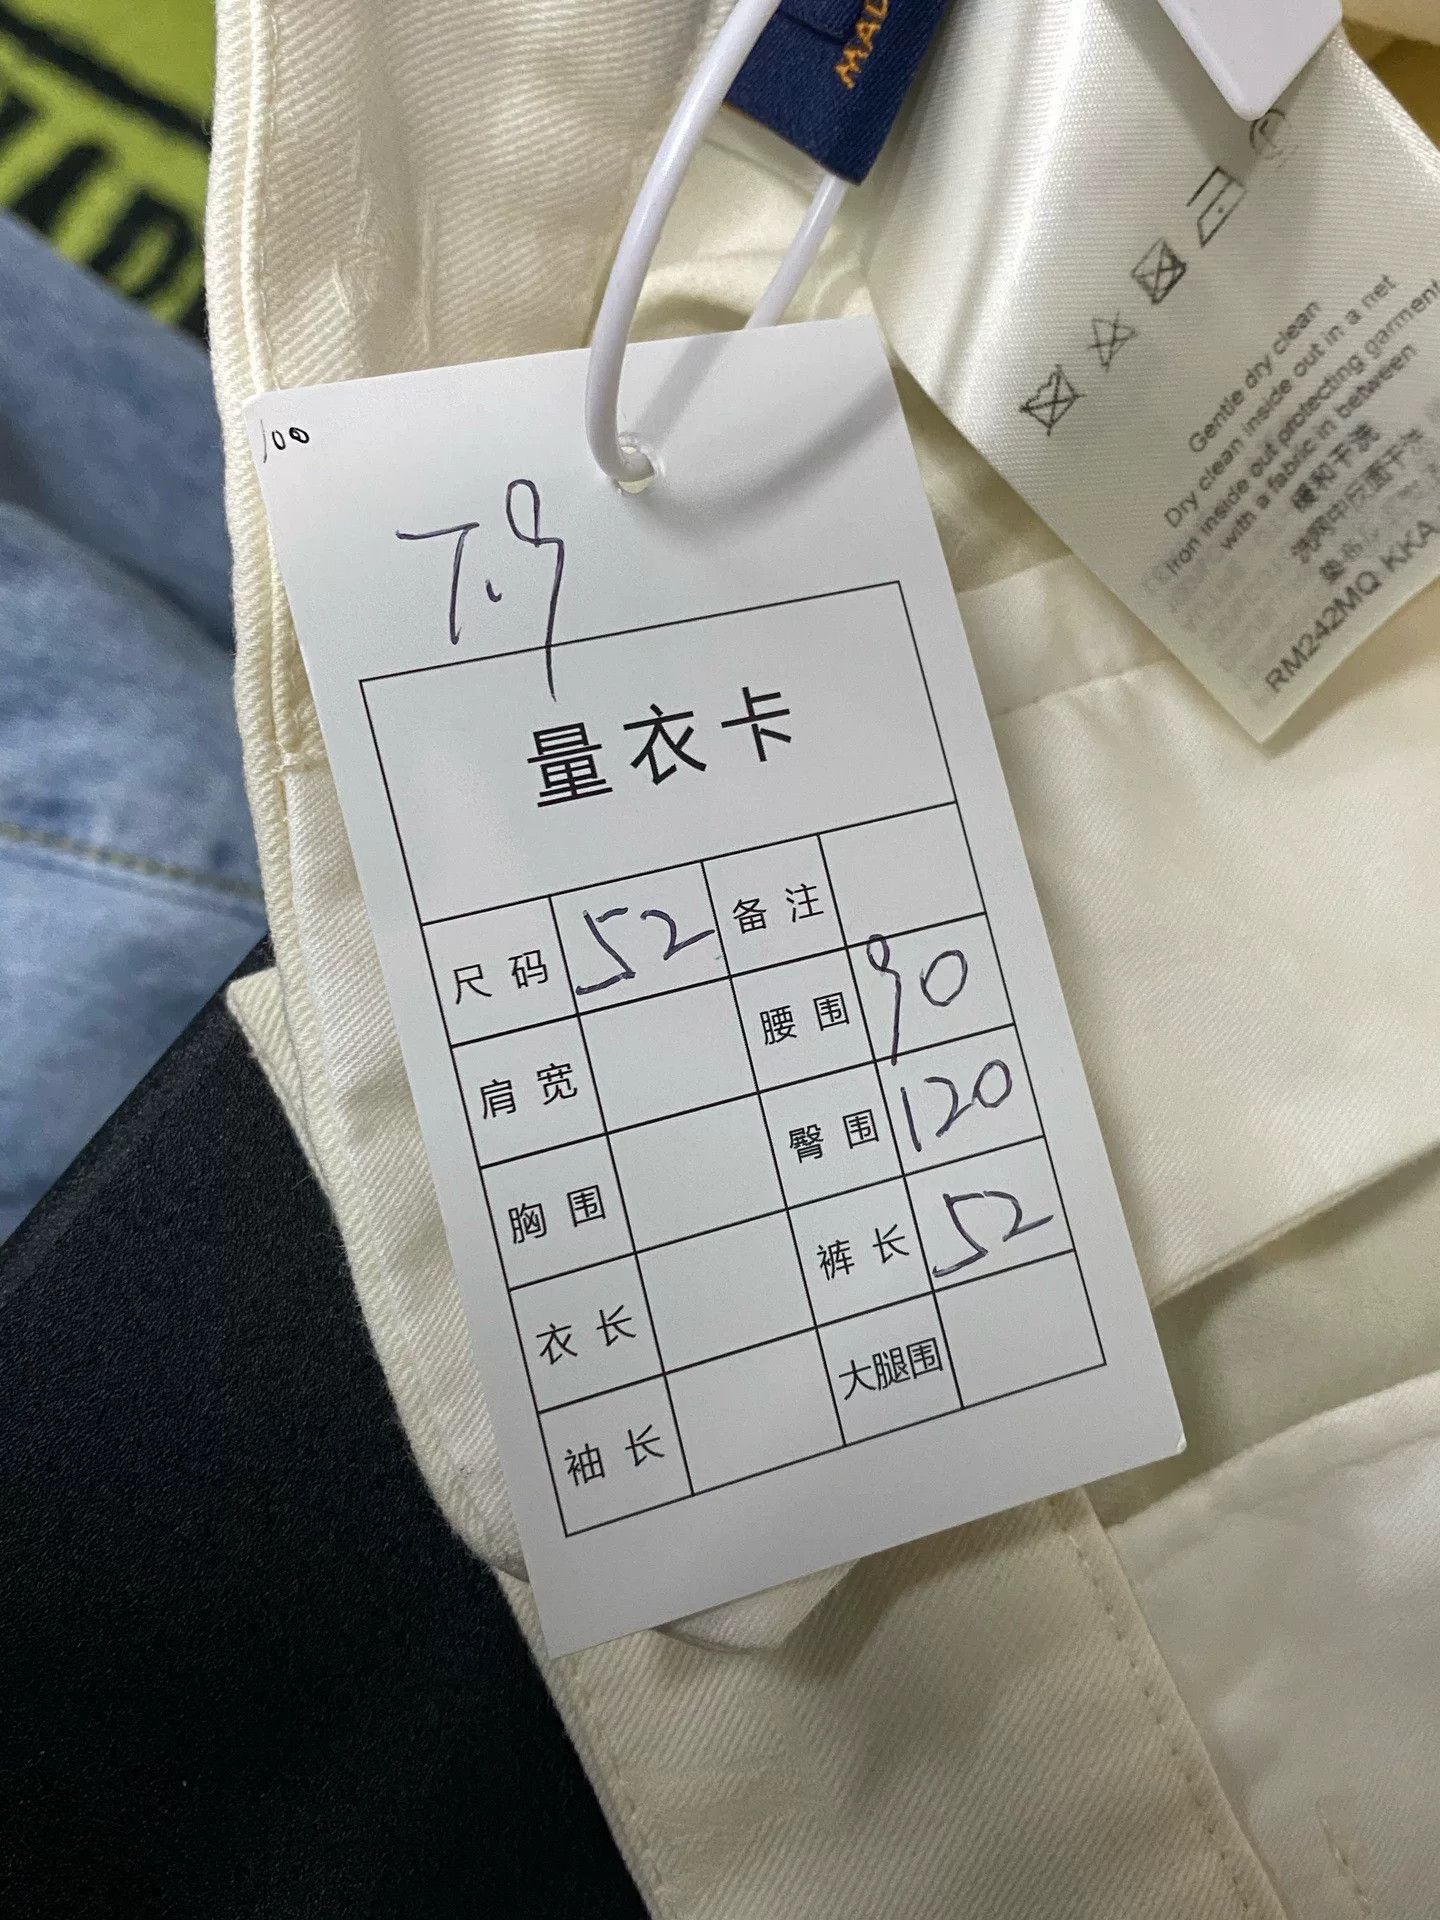 MAD
Gentle dry clean
Dry clean inside out in a net
Iron inside out protecting garment
with a fabric in between
缓和干洗
洗网中反面干洗
RM242MQ KKA
100
T.9
量衣卡
尺码 52 备注
肩宽 腰围 90
胸围 臀围 120
衣长 裤长 52
袖长 大腿围